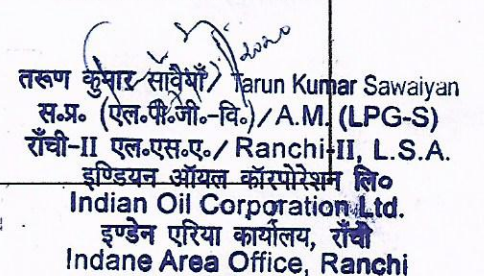 2020
तरूण कुमार सावैयाँ / Tarun Kumar Sawaiyan
स.प्र. (एल.पी.जी.-वि.) / A.M. (LPG-S)
राँची-II एल.एस.ए. / Ranchi-II, L.S.A.
इण्डियन ऑयल कॉरपोरेशन लि०
Indian Oil Corporation Ltd.
इण्डेन एरिया कार्यालय, राँची
Indane Area Office, Ranchi